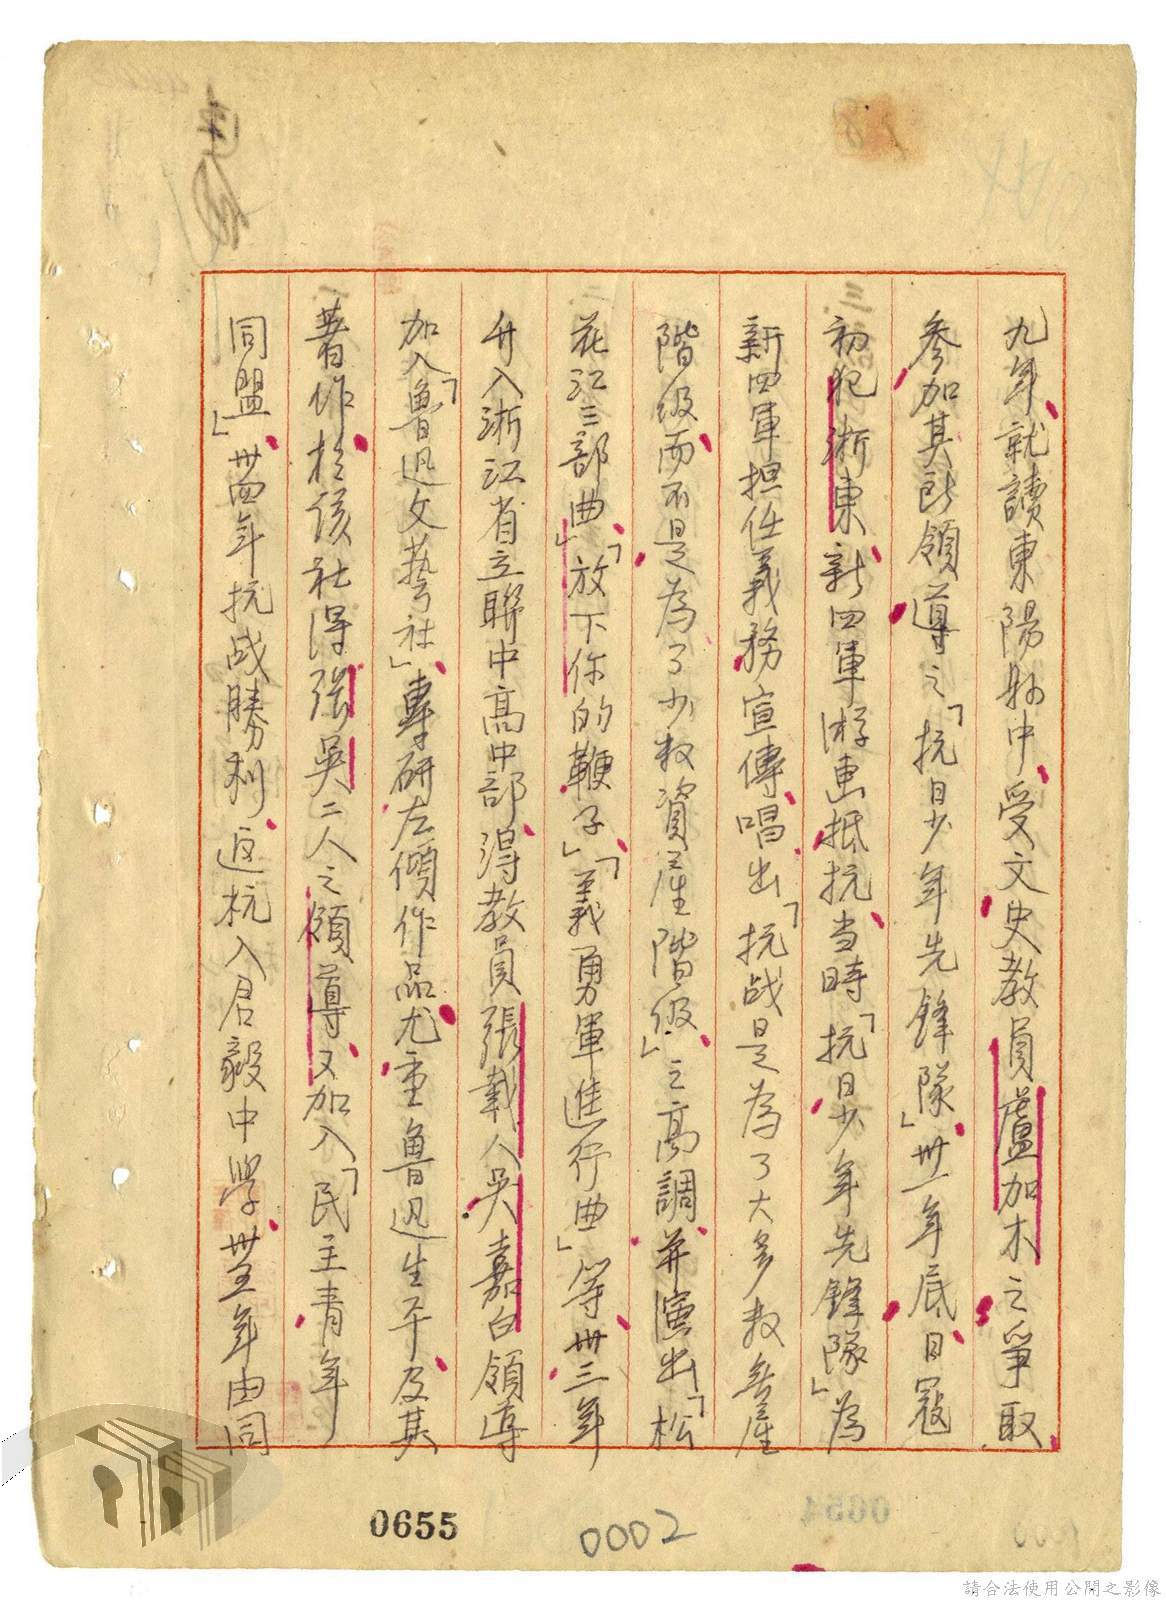 九年、就讀東陽縣中、受文史教員盧加木之爭取
參加其所領導之「抗日少年先鋒隊」卅一年底、日寇
初犯浙東、新四軍游擊抵抗、当時「抗日少年先鋒隊」為
新四軍担任義務宣傳、唱出「抗战是為了大多数無產
階级、而不是為了少数資產階级」之高調、并演出「松
花江三部曲」「放下你的鞭子」「義勇軍進行曲」等、卅三年
升入浙江省立聯中高中部、得教員張載人吳嘉白領導
加入「魯迅文藝社」、專研左傾作品尤重魯迅生平、及其
著作、於該社得張吳二人之領導、又加入「民主青年
同盟」、卅四年抗战勝利、返杭入君毅中學、卅五年由同
0655
0002
請合法使用公開之影像